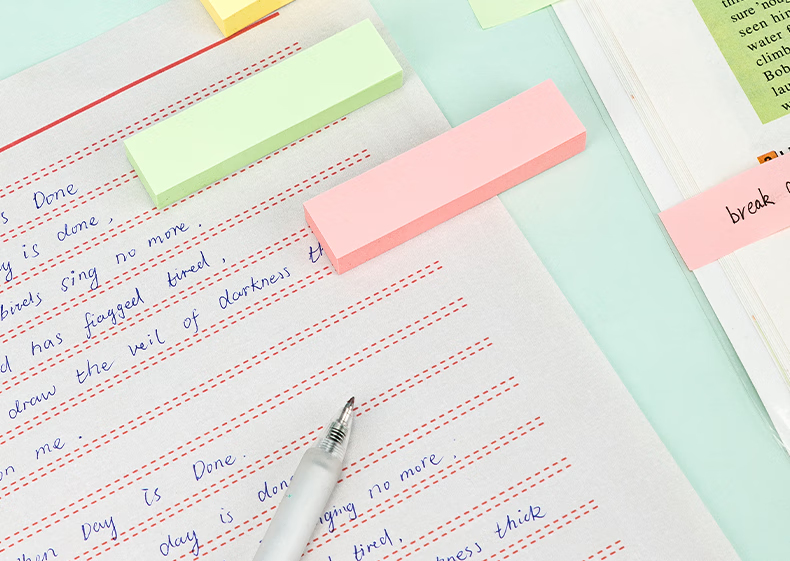 s Done
y is done,
birds sing no more.
d has fiagged tired,
draw the veil of darkness th
on me.
When Day is Done.
day is done
nging no more.
tired,
kness thick
break
thi
sure 'noug
seen him
water f
climb
Bob
lau
w